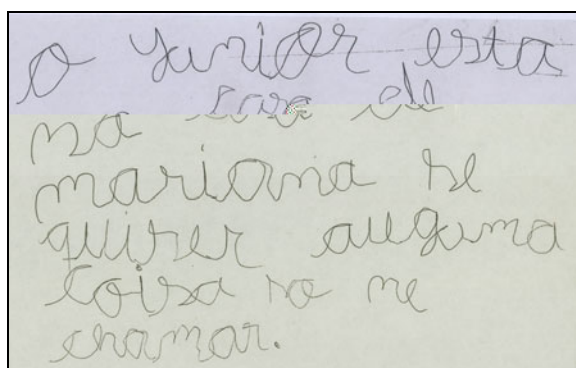 o Yunior esta
na casa de
mariana se
quiser auguma
coisa so me
chamar.